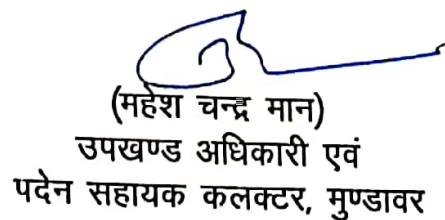 (महेश चन्द्र मान)
उपखण्ड अधिकारी एवं
पदेन सहायक कलक्टर, मुण्डावर